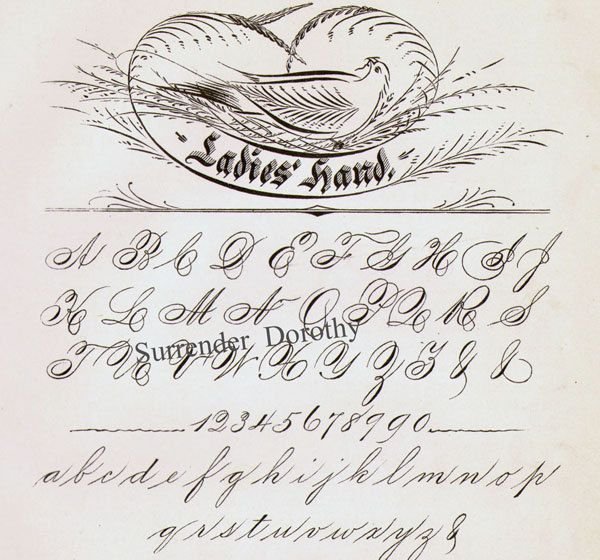 Ladies' Hand.
A B C D E F G H I J
K L M N O P Q R S
Surrender Dorothy
T U V W X Y Z & &
1234567899 0
a b c d e f g h i j k l m n o p
q r s t u v w x y z &